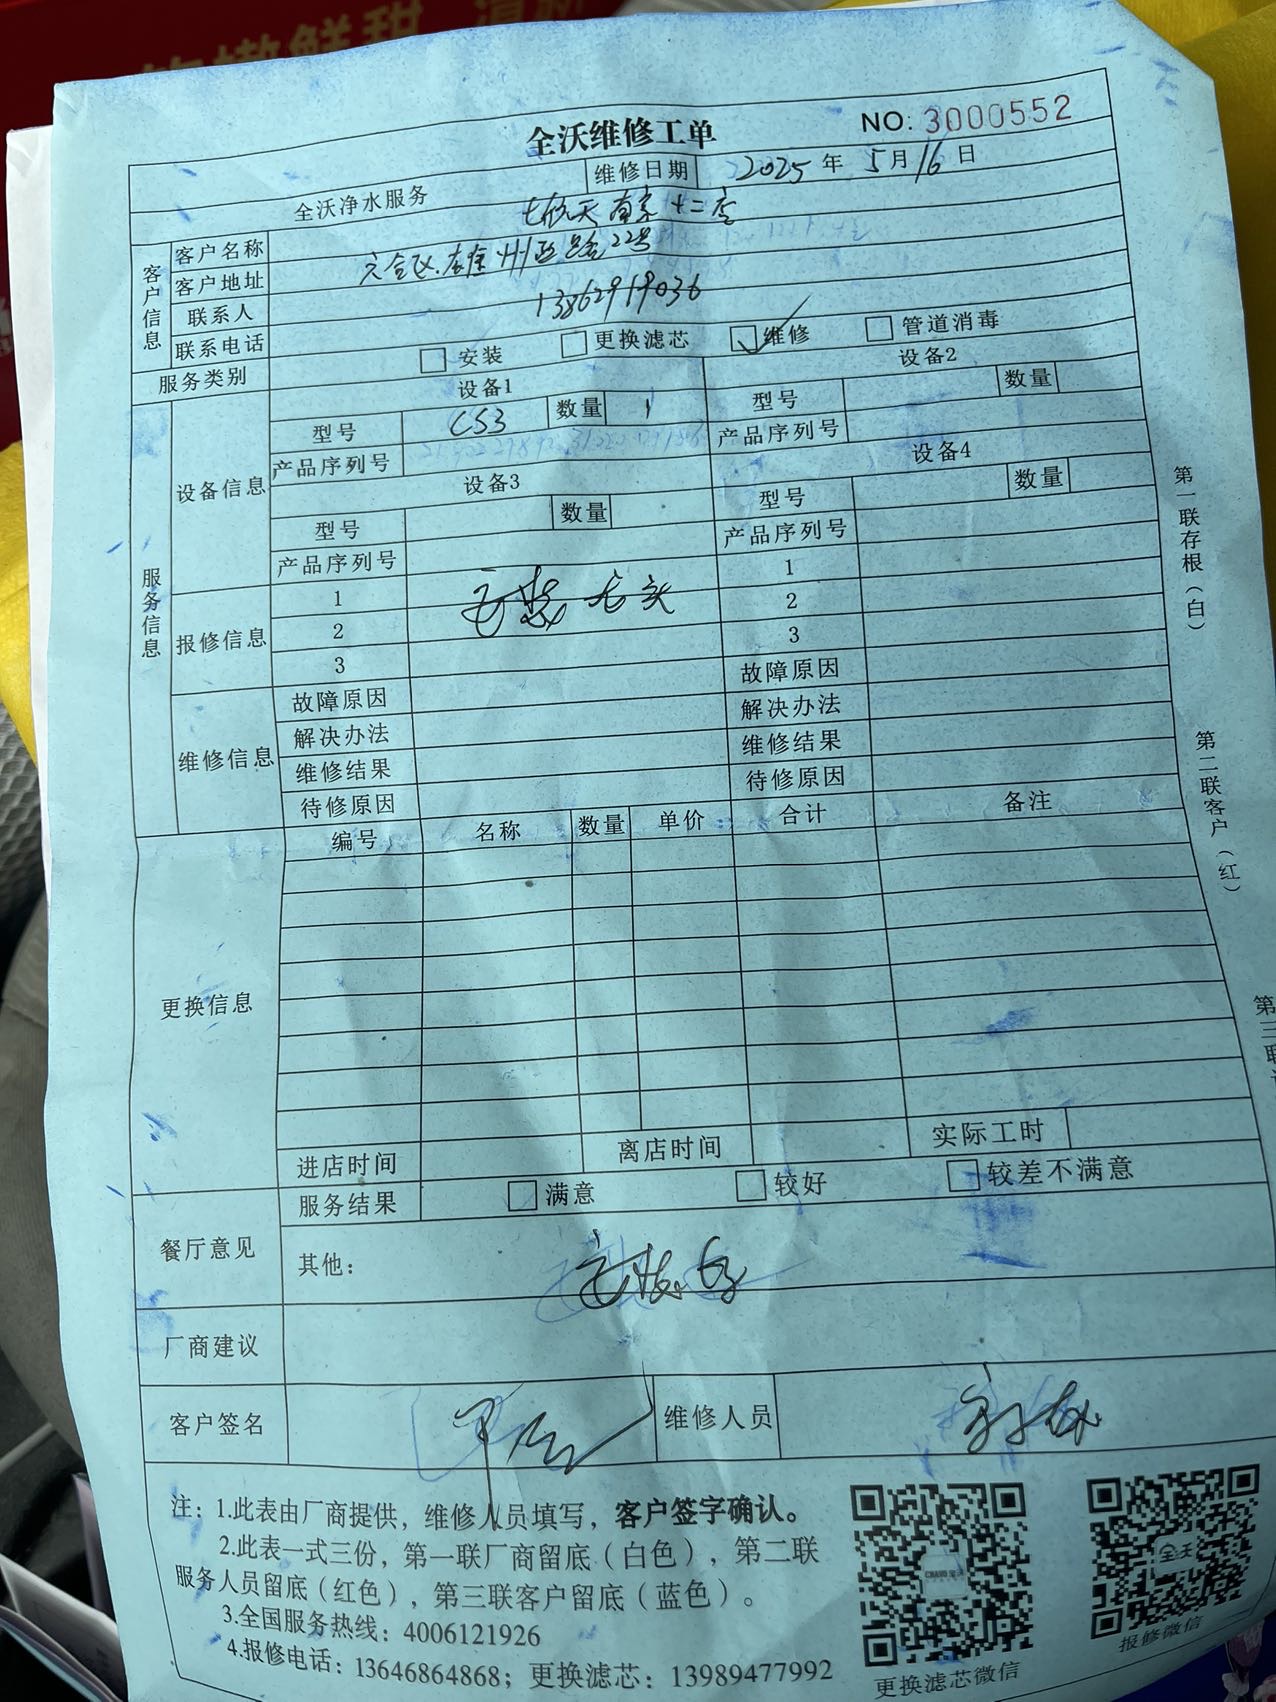 全沃维修工单
NO: 3000552
全沃净水服务 维修日期 2025 年 5 月 16 日
客户信息
客户名称 南京十二店
客户地址 六合区 雄州 路22号
联系人
联系电话 13862919036
服务类别 安装 更换滤芯 维修 管道消毒
服务信息
设备信息
设备1 设备2
型号 CS3 数量 1 型号 数量
产品序列号 产品序列号
设备3 设备4
型号 数量 型号 数量
产品序列号 产品序列号
报修信息
1 1
2 2
3 3
维修信息
故障原因 故障原因
解决办法 解决办法
维修结果 维修结果
待修原因 待修原因
更换信息
编号 名称 数量 单价 合计 备注
进店时间 离店时间 实际工时
餐厅意见
服务结果 满意 较好 较差不满意
其他：
厂商建议
客户签名 维修人员
注：1.此表由厂商提供，维修人员填写，客户签字确认。
2.此表一式三份，第一联厂商留底（白色），第二联
服务人员留底（红色），第三联客户留底（蓝色）。
3.全国服务热线：4006121926
4.报修电话：13646864868；更换滤芯：13989477992
更换滤芯微信
全沃
报修微信
第一联存根（白）
第二联客户（红）
第三联